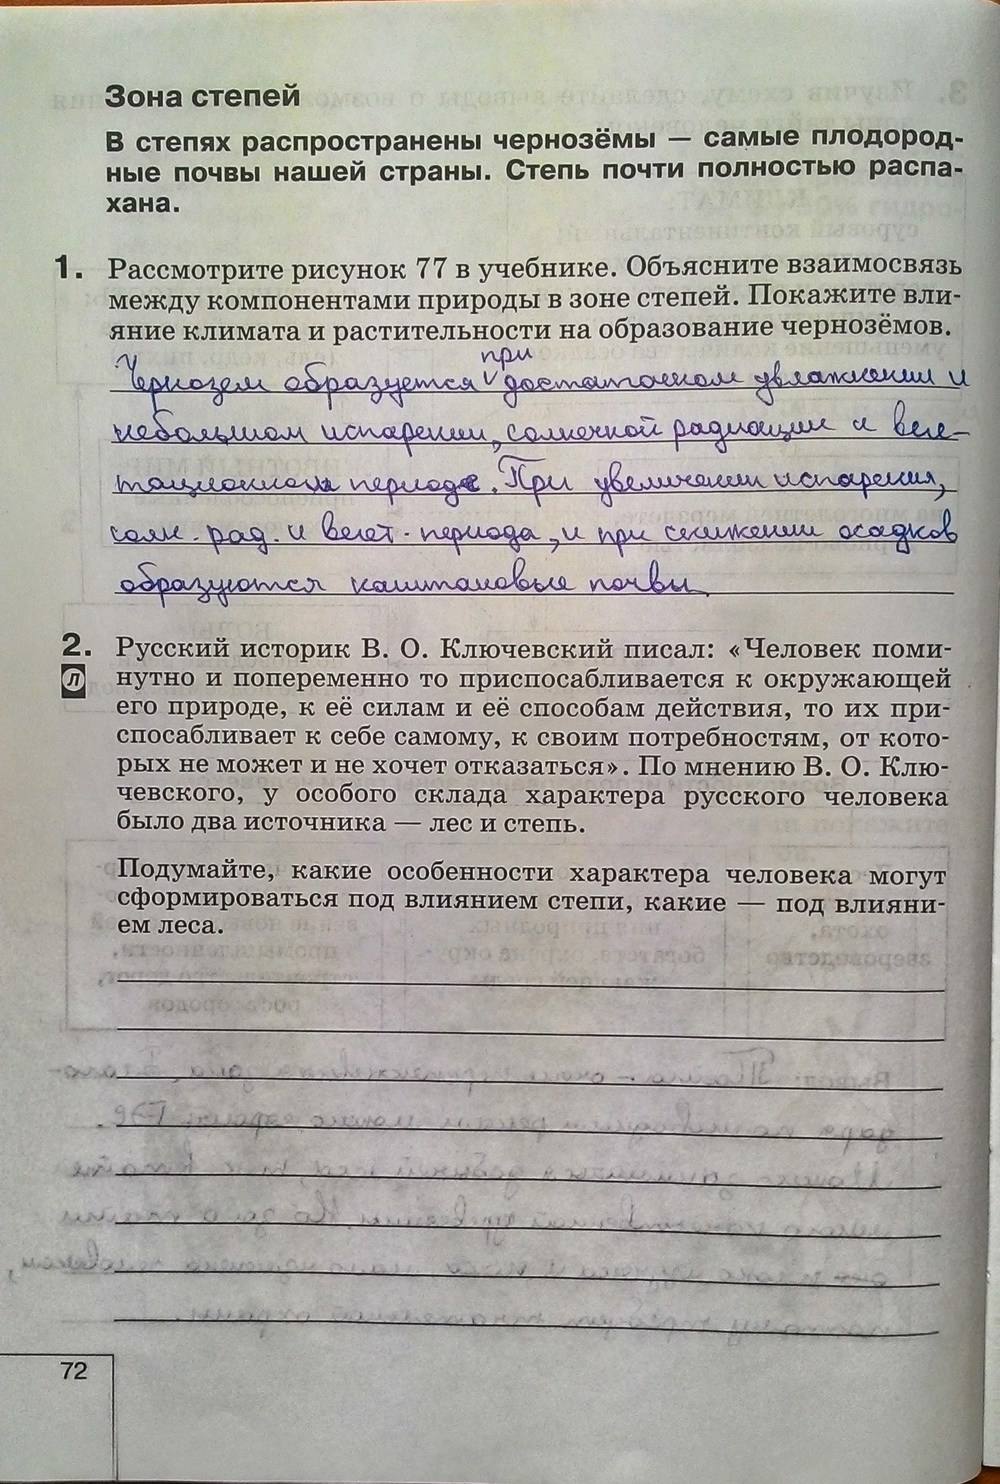 Зона степей
В степях распространены чернозёмы — самые плодород-
ные почвы нашей страны. Степь почти полностью распа-
хана.
1. Рассмотрите рисунок 77 в учебнике. Объясните взаимосвязь
между компонентами природы в зоне степей. Покажите вли-
яние климата и растительности на образование чернозёмов.
при
Чернозем образуется достаточном увлажнении и
небольшом испарении, солнечной радиации и веге-
тационном периоде. При увеличении испарения,
солн. рад. и вегет. периода, и при снижении осадков
образуются каштановые почвы
2. Русский историк В. О. Ключевский писал: «Человек поми-
Л нутно и попеременно то приспосабливается к окружающей
его природе, к её силам и её способам действия, то их при-
спосабливает к себе самому, к своим потребностям, от кото-
рых не может и не хочет отказаться». По мнению В. О. Клю-
чевского, у особого склада характера русского человека
было два источника — лес и степь.
Подумайте, какие особенности характера человека могут
сформироваться под влиянием степи, какие — под влияни-
ем леса.
72